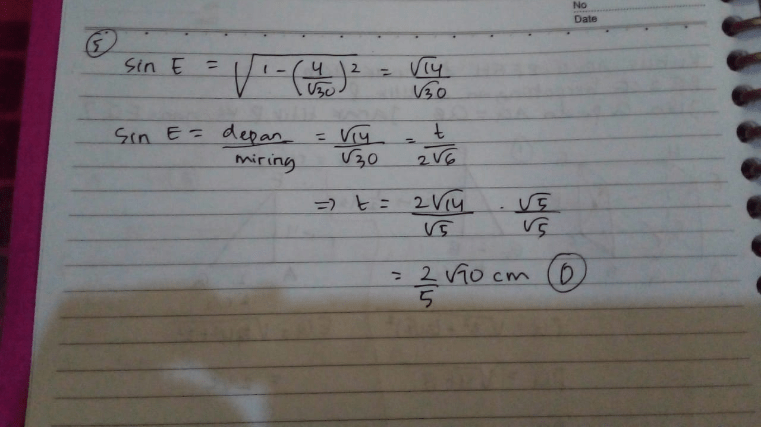 No
Date
5
sin E = √(1 - (4/√30)²) = √14/√30
sin E = depan/miring = √14/√30 = t/2√6
=> t = 2√14/√5 . √5/√5
= 2/5 √70 cm (D)